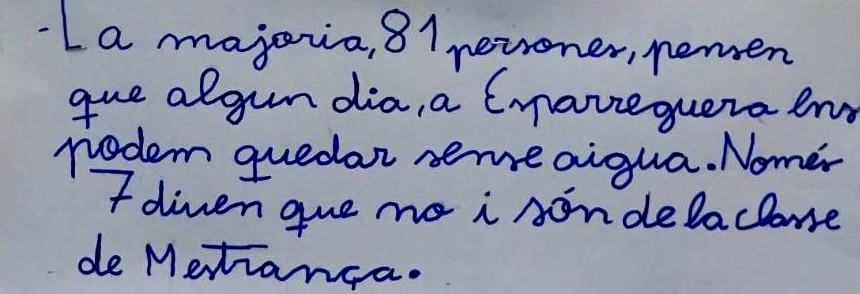 -La majoria, 81 persones, pensen
que algun dia, a Esparreguera ens
podem quedar sense aigua. Només
7 diuen que no i són de la classe
de Mestrança.